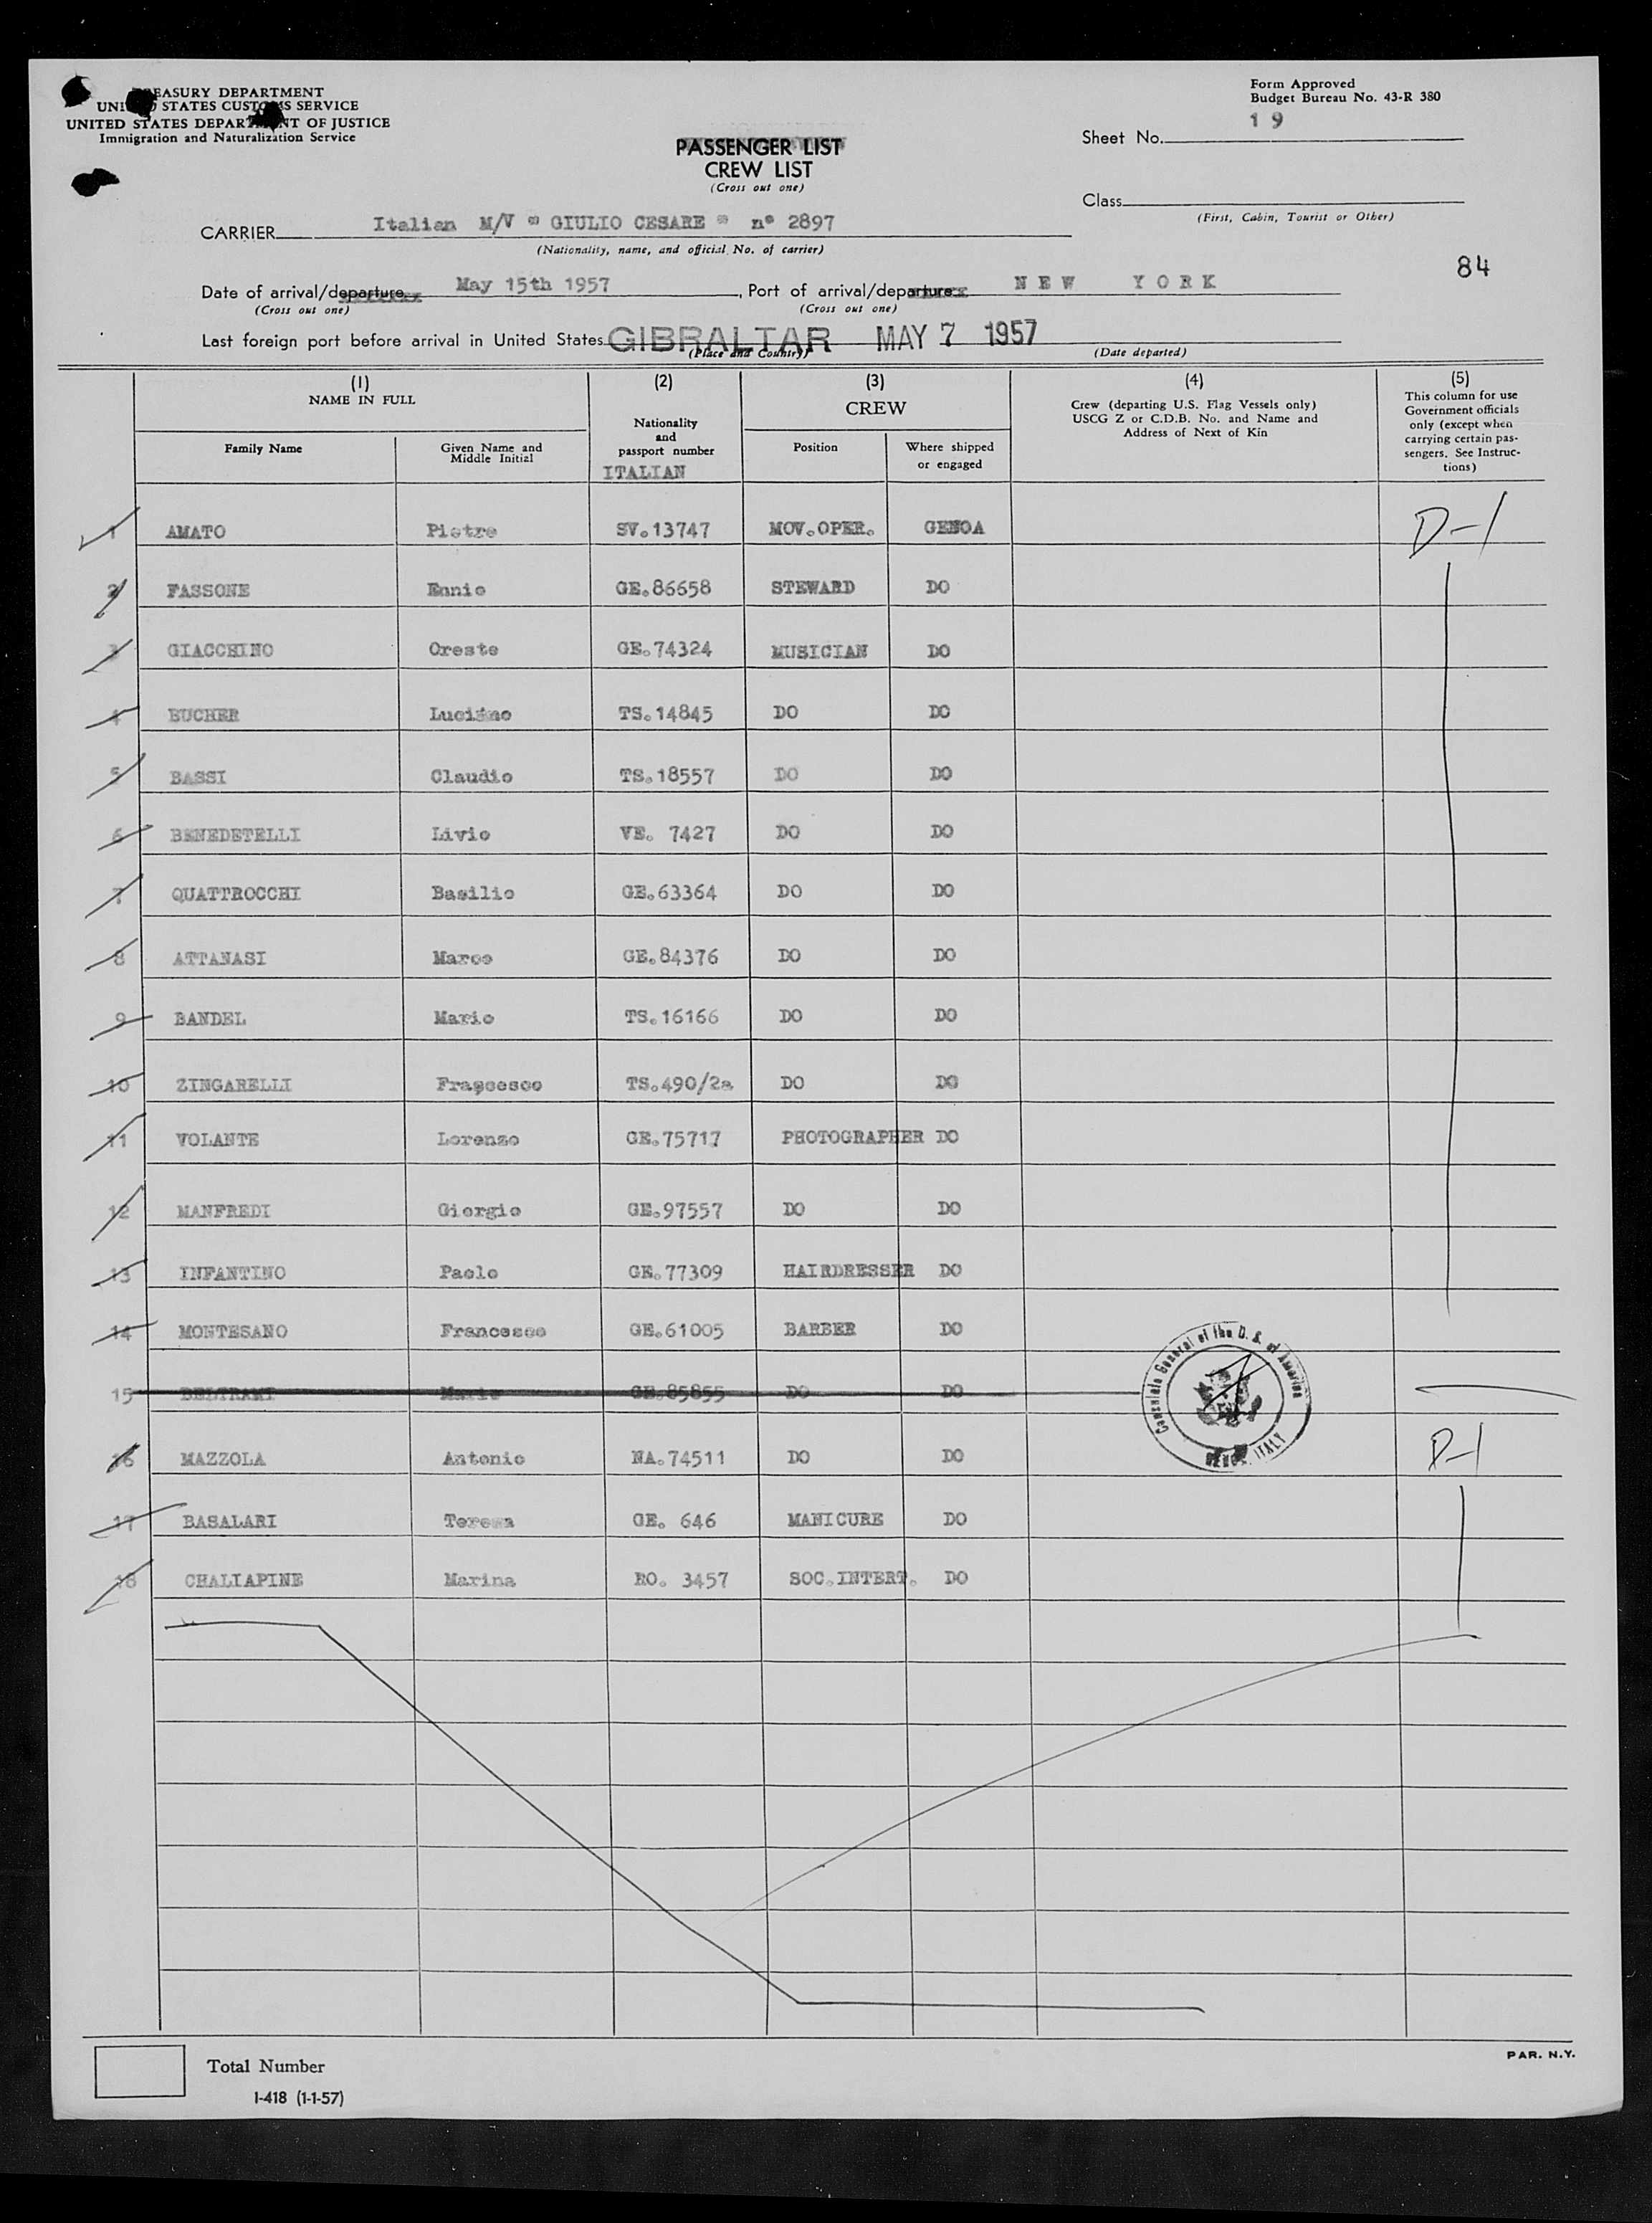 TREASURY DEPARTMENT
UNITED STATES CUSTOMS SERVICE
UNITED STATES DEPARTMENT OF JUSTICE
Immigration and Naturalization Service
Form Approved
Budget Bureau No. 43-R 380
Sheet No. 1 9
PASSENGER LIST
CREW LIST
(Cross out one)
Class
(First, Cabin, Tourist or Other)
CARRIER Italian M/V " GIULIO CESARE " n° 2897
(Nationality, name, and official No. of carrier)
84
Date of arrival/departure May 15th 1957, Port of arrival/departure NEW YORK
(Cross out one) (Cross out one)
Last foreign port before arrival in United States GIBRALTAR MAY 7 1957
(Place and Country) (Date departed)
(1) (2) (3) (4) (5)
NAME IN FULL
Family Name
Given Name and Middle Initial
Nationality and passport number
ITALIAN
CREW
Position
Where shipped or engaged
Crew (departing U.S. Flag Vessels only)
USCG Z or C.D.B. No. and Name and
Address of Next of Kin
This column for use
Government officials
only (except when
carrying certain pas-
sengers. See Instruc-
tions)
1 AMATO Pietro SV.13747 MOV.OPER. GENOA D-1
2 FASSONE Ennio GE.86658 STEWARD DO
3 GIACCHINO Oreste GE.74324 MUSICIAN DO
4 BUCHER Luciano TS.14845 DO DO
5 BASSI Claudio TS.18557 DO DO
6 BENEDETELLI Livio VE. 7427 DO DO
7 QUATTROCCHI Basilio GE.63364 DO DO
8 ATTANASI Marco GE.84376 DO DO
9 BANDEL Mario TS.16166 DO DO
10 ZINGARELLI Francesco TS.490/2a DO DO
11 VOLANTE Lorenzo GE.75717 PHOTOGRAPHER DO
12 MANFREDI Giorgio GE.97557 DO DO
13 INFANTINO Paolo GE.77309 HAIRDRESSER DO
14 MONTESANO Francesco GE.61005 BARBER DO
15 BELTRAMI Mario GE.85855 DO DO
Consulate General of the U. S. of America
GENOA, ITALY
16 MAZZOLA Antonio NA.74511 DO DO D-1
17 BASALARI Teresa GE. 646 MANICURE DO
18 CHALIAPINE Marina RO. 3457 SOC.INTERT. DO
Total Number
I-418 (1-1-57)
PAR. N.Y.